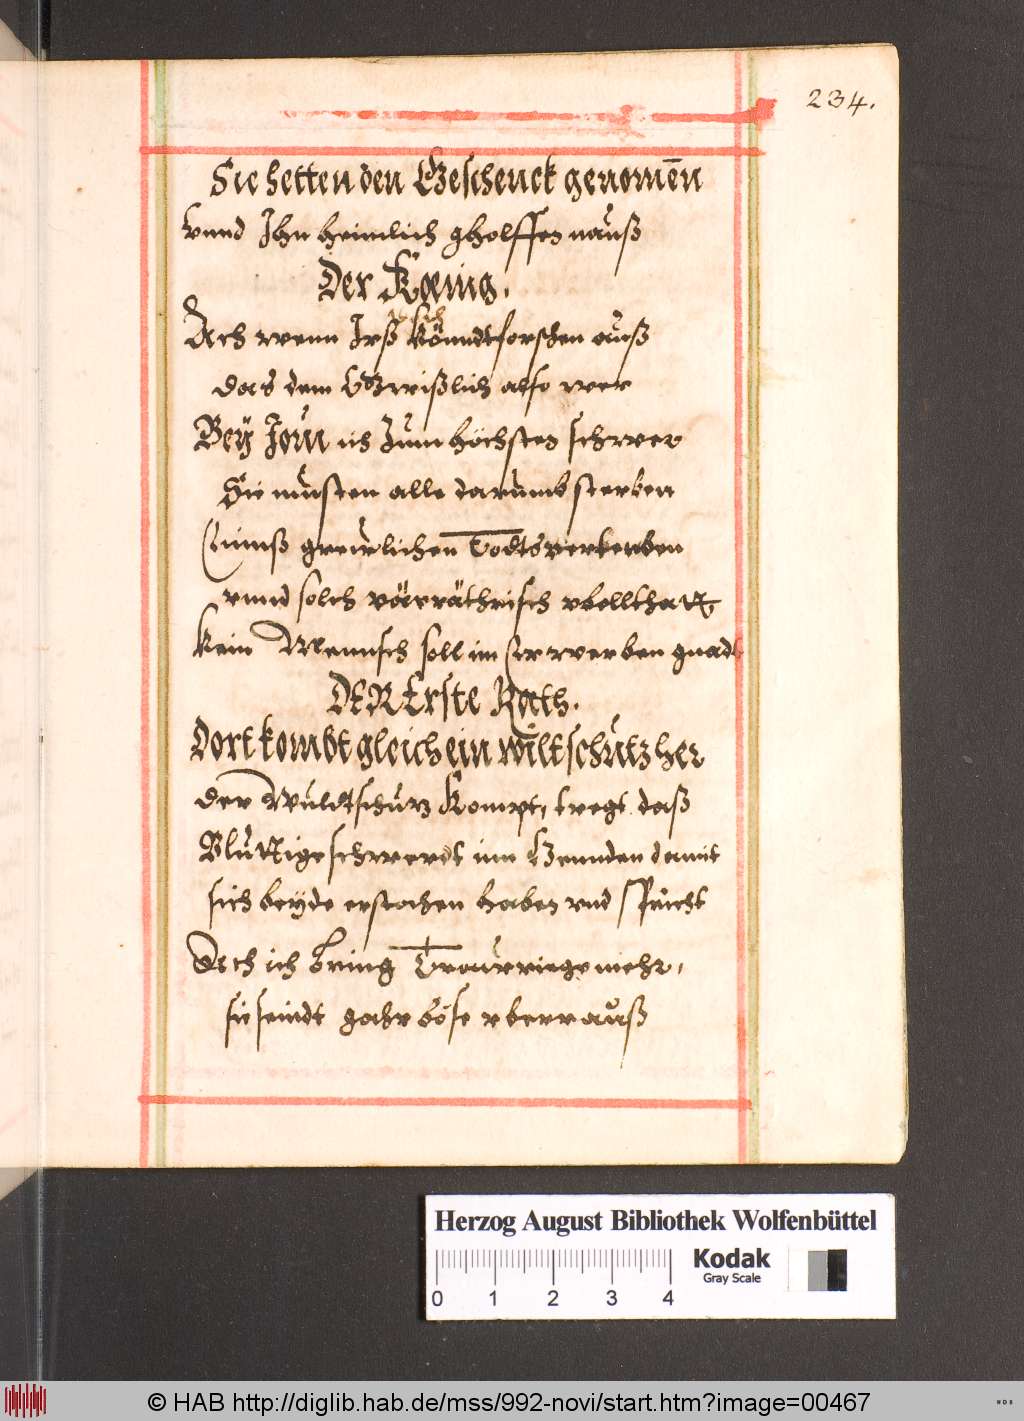 234.
Sie hetten den Geschenck genomēn
vnnd Ihn heimlich gholffen nauß
Der Kœnig.
Ach wenn Irß köndt forschen auß
das dem Gwißlich also wer
Beÿ Ioui ich Zum höchsten schwer
Sie musten alle darumb sterben
Einnß greẅlichen Todts verterben
vnnd solch värräthrisch vbellthatt
kein Mennsch soll im erwerben gnadt
DER Erste Rath.
Dort kombt gleich ein wiltschütz her
der Wuldtschütz kompt, tregt daß
Bluttige schwerdt inn Hennden damit
sich beÿde erstochen haben vnd spricht
Ach ich bring Traurrige mehr,
sie seindt gahr böse vberrauß
Herzog August Bibliothek Wolfenbüttel
Kodak
Gray Scale
0 1 2 3 4
© HAB http://diglib.hab.de/mss/992-novi/start.htm?image=00467